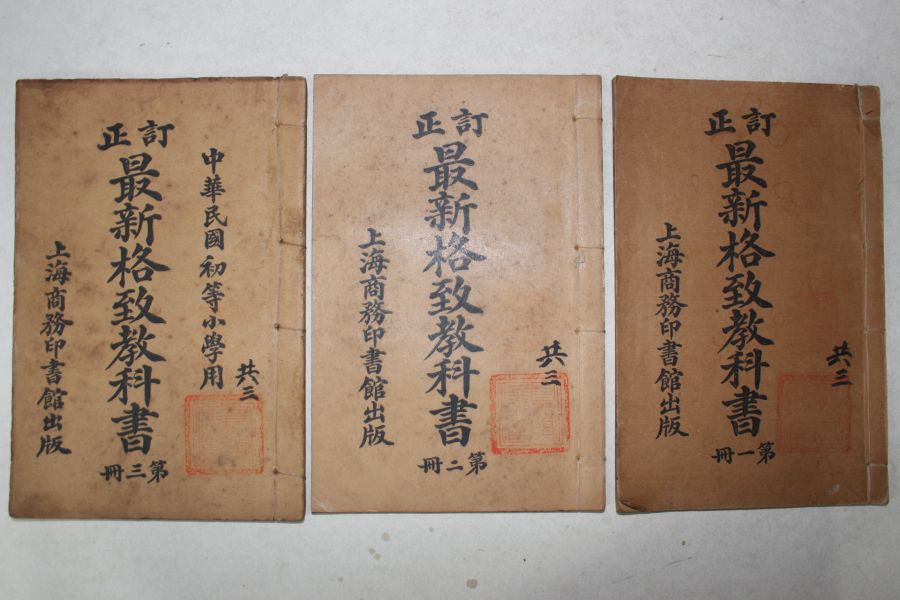 訂正
最新格致教科書
第一冊
上海商務印書館出版
共三
訂正
最新格致教科書
第二冊
上海商務印書館出版
共三
中華民國初等小學用
訂正
最新格致教科書
第三冊
上海商務印書館出版
共三